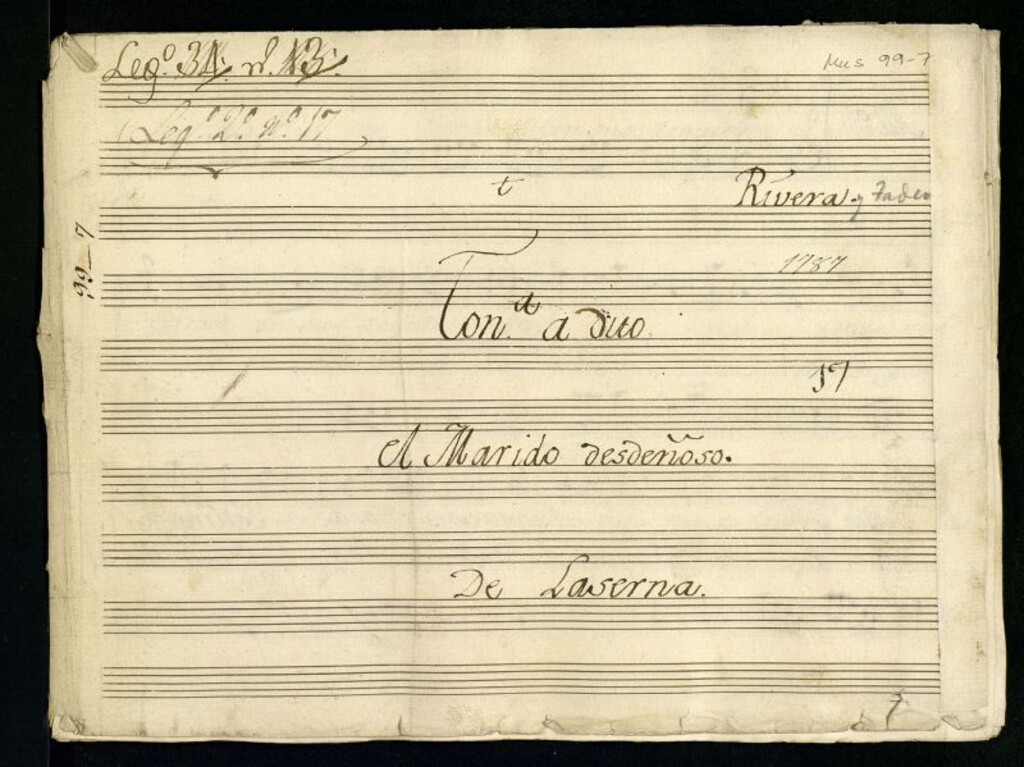 Leg.º 31. nº. 13.
Mus 99-7
Leg.º 2.º n.º 17
t
Rivera y Tadeo
99-7
1787
Ton.ª a duo.
17
el Marido desdeñoso.
De Laserna.
7